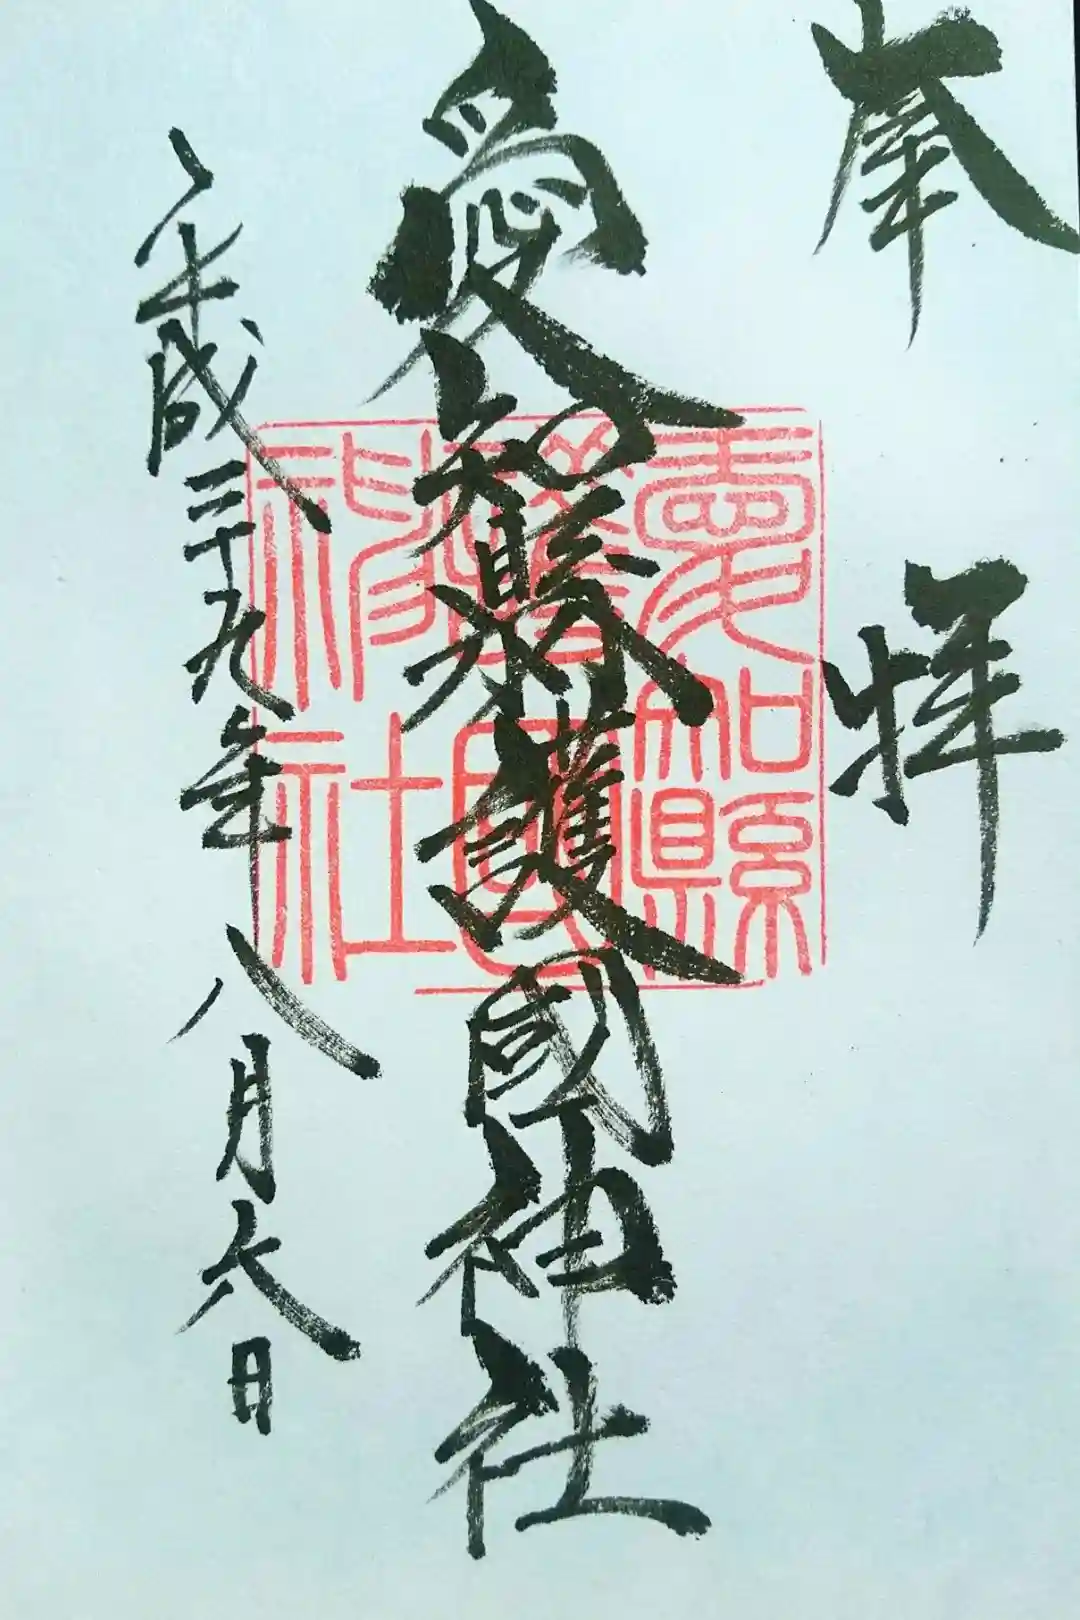 奉拝
愛知縣護國神社
愛知縣護國神社
平成二十九年八月六日